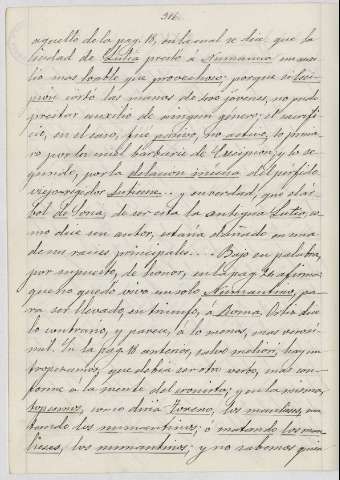 316.
aquello de la pag. 18, en la cual se dice que la
Ciudad de Lutia prestó á Numancia un auxi-
lio mas loable que provechoso; porque si Esci-
pion cortó las manos de 400 jóvenes, no pudo
prestar auxilio de ningun género; el sacrifi-
cio, en el caso, fue pasivo, no activo; lo prime-
ro por la cruel barbarie de Escipion; y lo se-
gundo, por la delacion inicua del pérfido
viejo regidor Lutiense... y en verdad, que el ár-
bol de Soria, de ser esta la antigua Lutia, co-
mo dice su autor, estaria dañado en una
de sus raices principales.... Bajo su palabra,
por supuesto, de honor, en la pag. 24 afirma
que no quedó vivo un solo Numantino, pa-
ra ser llevado, en triunfo, á Roma. Otro dia
lo contrario, y parece, á lo menos, mas verosi-
mil. En la pag. 18 anterior, salvo meliori, hay un
tropezamos, que debia ser otro verbo, mas con-
forme á la mente del cronista; y en la misma,
topamos, como diria Toreno, los mantases, ma-
tando los numantinos; ó matando los man-
lieses, los numantinos; y no sabemos quien